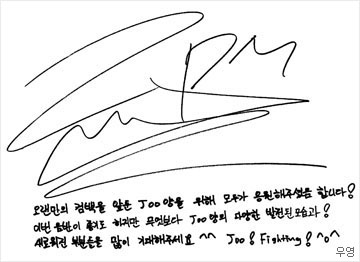 2PM
오랜만의 컴백을 앞둔 Joo양을 위해 모두가 응원해주셨음 합니다!
이번 음반이 좋기도 하지만 무엇보다 Joo양의 다양한 발전된 모습과!
새로워진 부분들을 많이 기대해주세요 ^^ Joo! Fighting! ^o^
우영